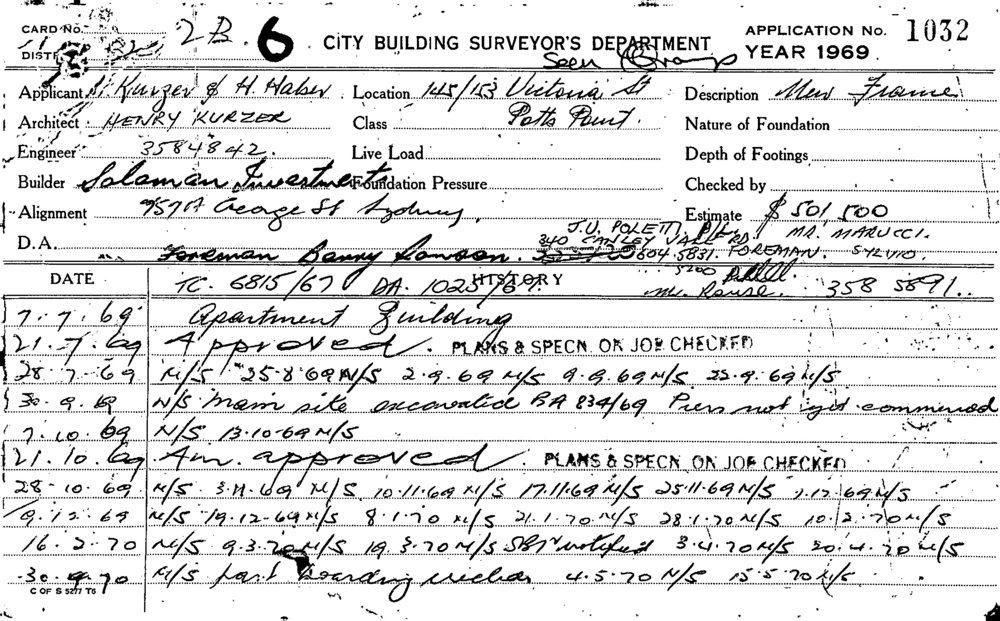 CARD No. 2B. 6 CITY BUILDING SURVEYOR'S DEPARTMENT APPLICATION No. 1032
DIST. Seen YEAR 1969
Applicant Kurzer & H. Halser Location 145/153 Victoria St Description New Frame
Architect HENRY KURZER Class Potts Point. Nature of Foundation
Engineer 3584842. Live Load Depth of Footings
Builder Salaman Investments Foundation Pressure Checked by
Alignment 957A George St Sydney. Estimate $501,500
J.V. POLETTI P/L. MR. MARUCCI.
D.A. 340 CANLEY VALE RD.
Foreman Barry 604.5831. FOREMAN. SYLVIO.
DATE HISTORY
TC. 6815/67 DA. 1025/67. Mr. Rouse. 358 5891.
7.7.69 Apartment Building
21.7.69 Approved. PLANS & SPECN. ON JOB CHECKED
28.7.69 N/S 25.8.69 N/S 2.9.69 N/S 9.9.69 N/S 22.9.69 N/S
30.9.69 N/S Main site excavated BA 834/69 Piers not yet commenced
7.10.69 N/S 13.10.69 N/S
21.10.69 Am. approved. PLANS & SPECN. ON JOB CHECKED
28.10.69 N/S 3.11.69 N/S 10.11.69 N/S 17.11.69 N/S 25.11.69 N/S 2.12.69 N/S
9.12.69 N/S 19.12.69 N/S 8.1.70 N/S 21.1.70 N/S 28.1.70 N/S 10.2.70 N/S
16.2.70 N/S 9.3.70 N/S 19.3.70 N/S notified 3.4.70 N/S 20.4.70 N/S
30.4.70 N/S part hoarding 4.5.70 N/S 15.5.70 N/S
C OF S 5277 T6